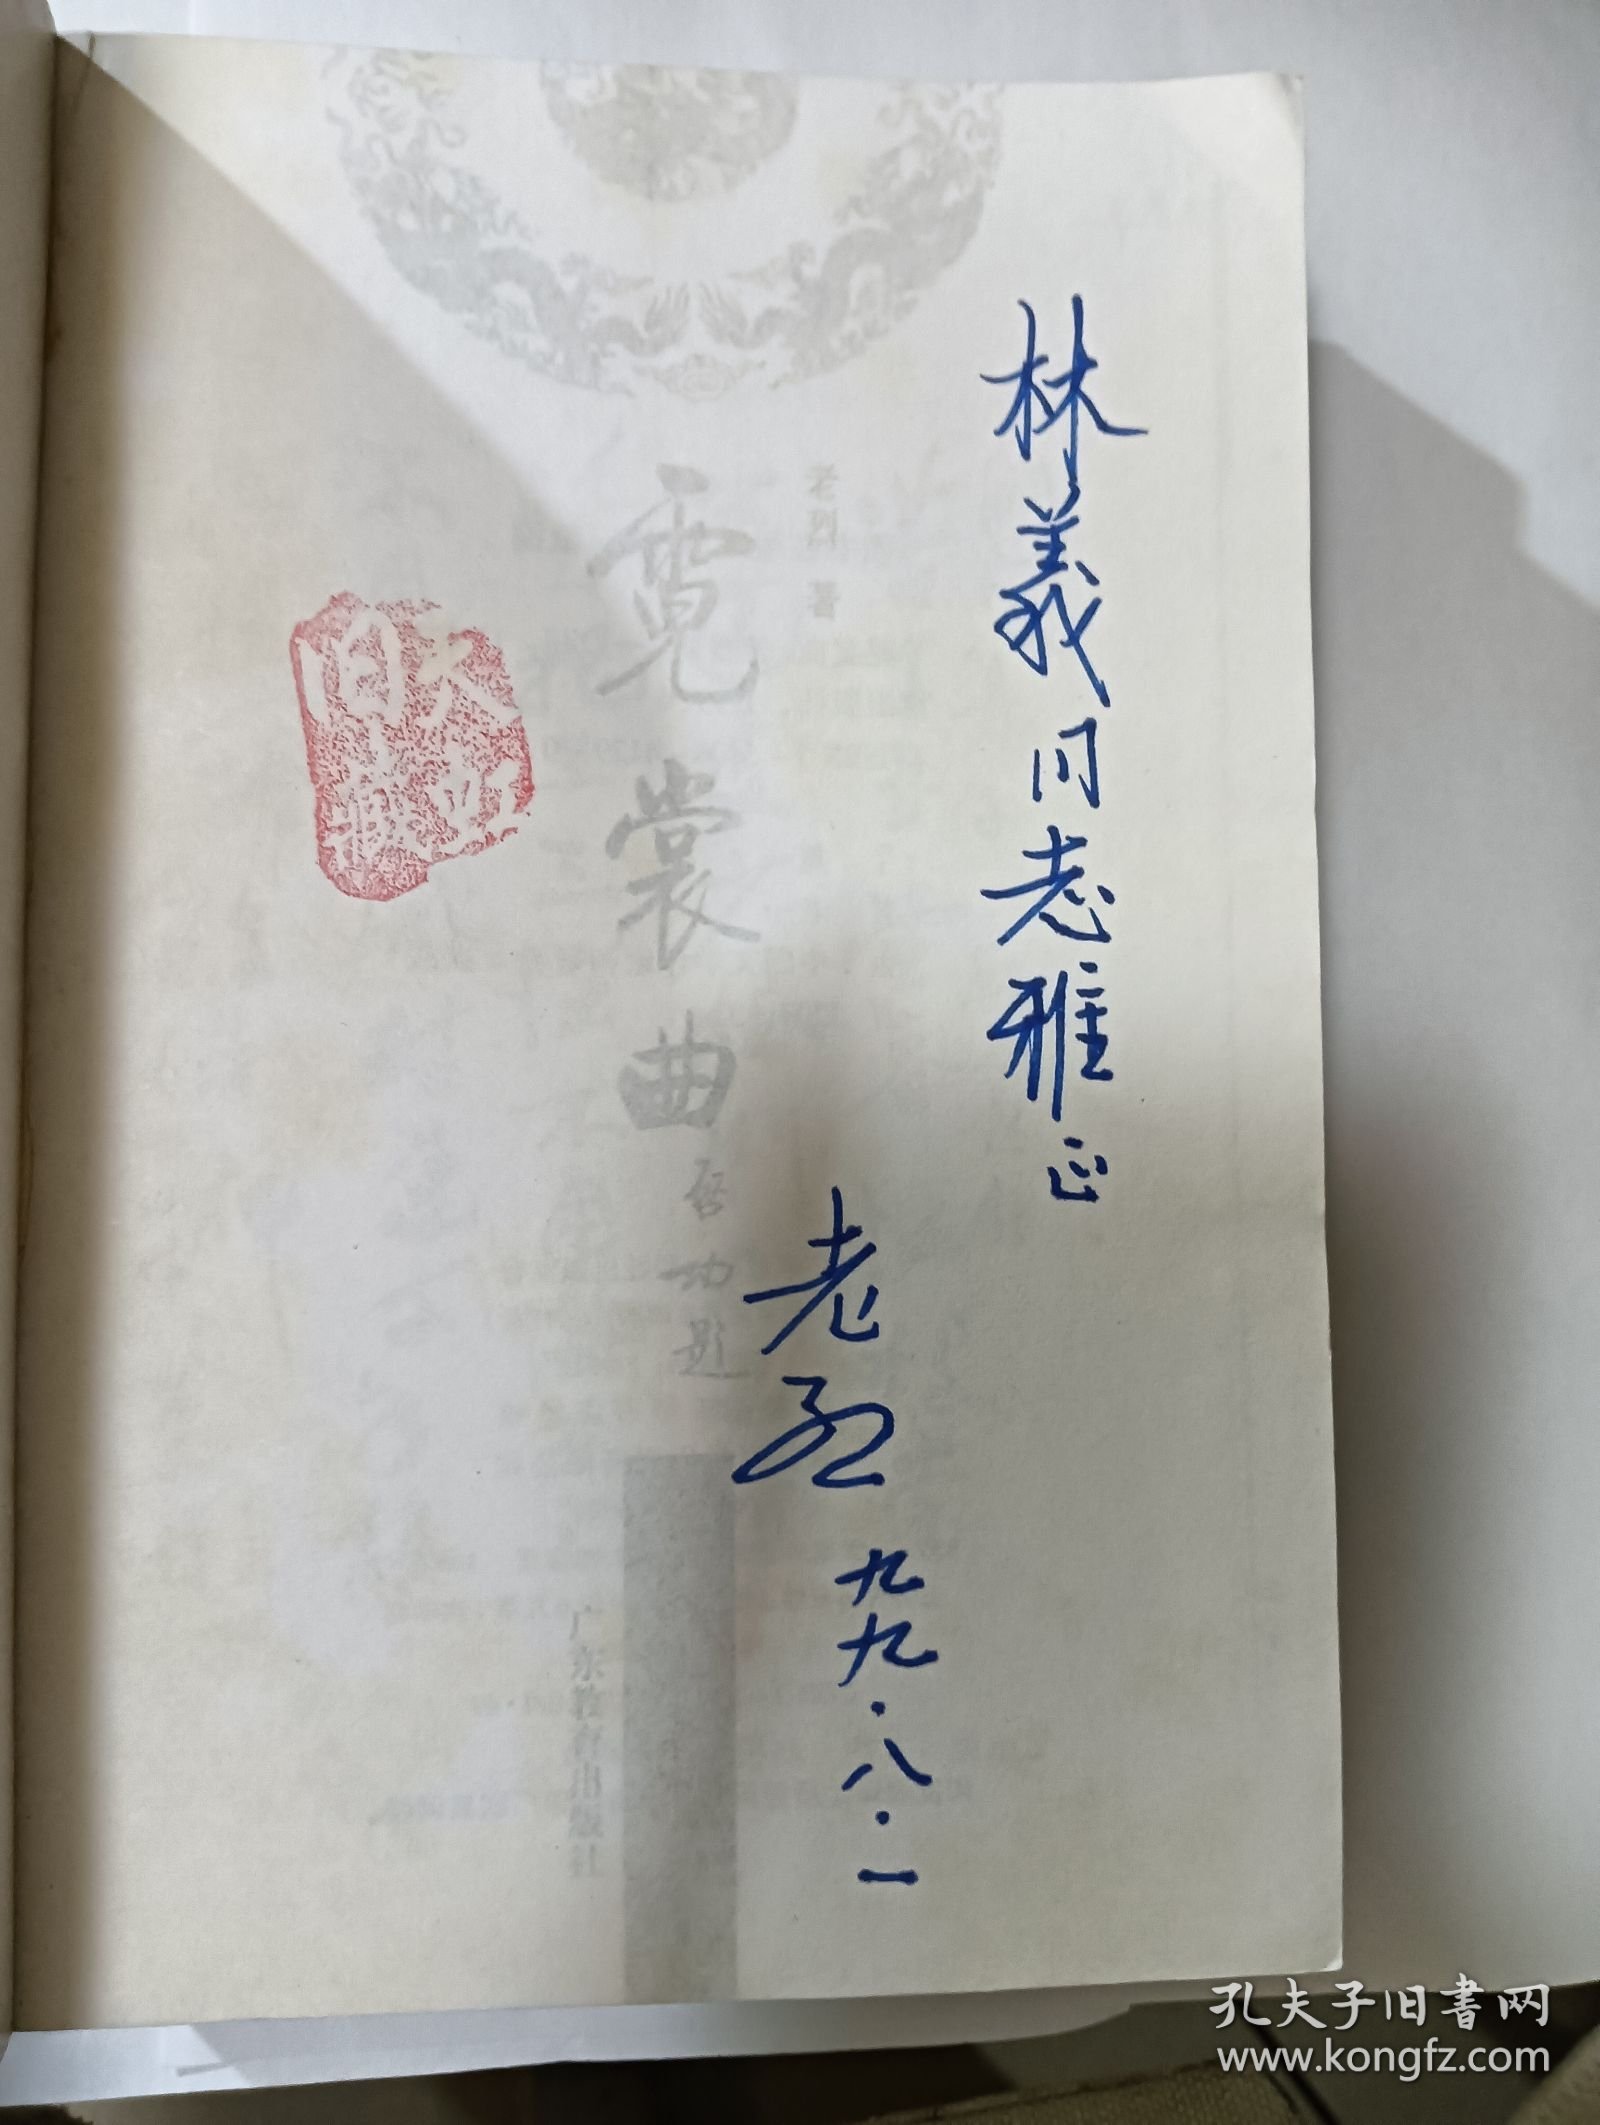 林義同志雅正
老烈
九九·八·一
老烈 著
霓裳曲
启功题
广东教育出版社
孔夫子旧书网
www.kongfz.com